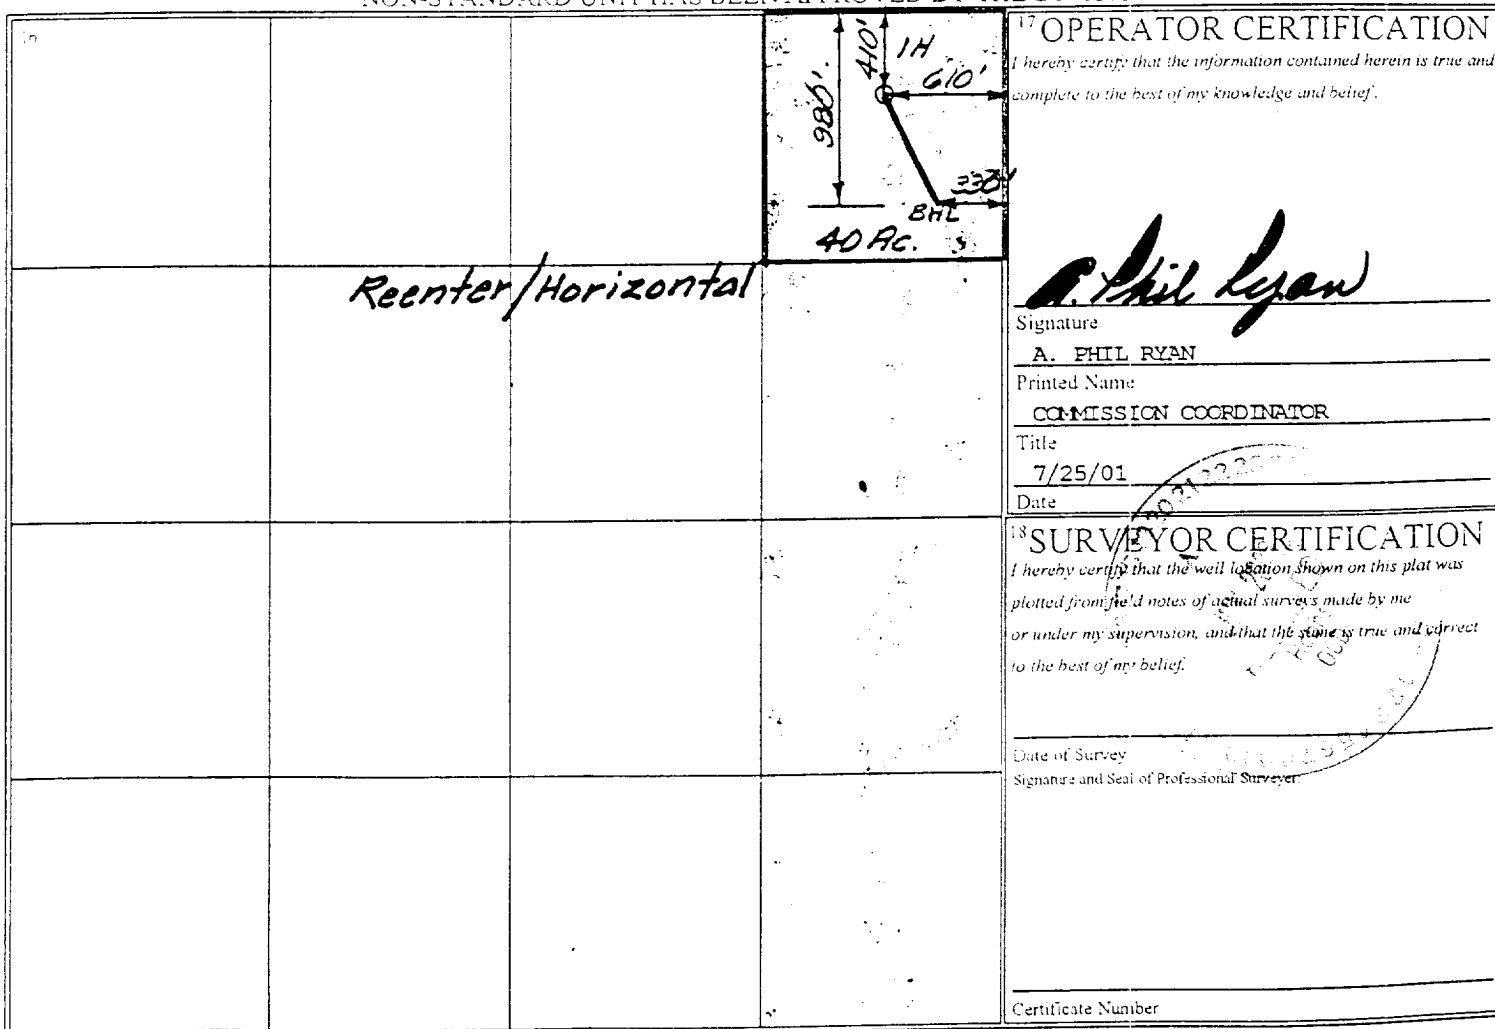 NON-STANDARD UNIT HAS BEEN APPROVED BY THE
16
410'
1H
610'
986'
330'
BHL
40 Ac.
Reenter/Horizontal
17 OPERATOR CERTIFICATION
I hereby certify that the information contained herein is true and
complete to the best of my knowledge and belief.
A. Phil Ryan
Signature
A. PHIL RYAN
Printed Name
COMMISSION COORDINATOR
Title
7/25/01
Date
18 SURVEYOR CERTIFICATION
I hereby certify that the well location shown on this plat was
plotted from field notes of actual surveys made by me
or under my supervision, and that the same is true and correct
to the best of my belief.
Date of Survey
Signature and Seal of Professional Surveyer:
Certificate Number